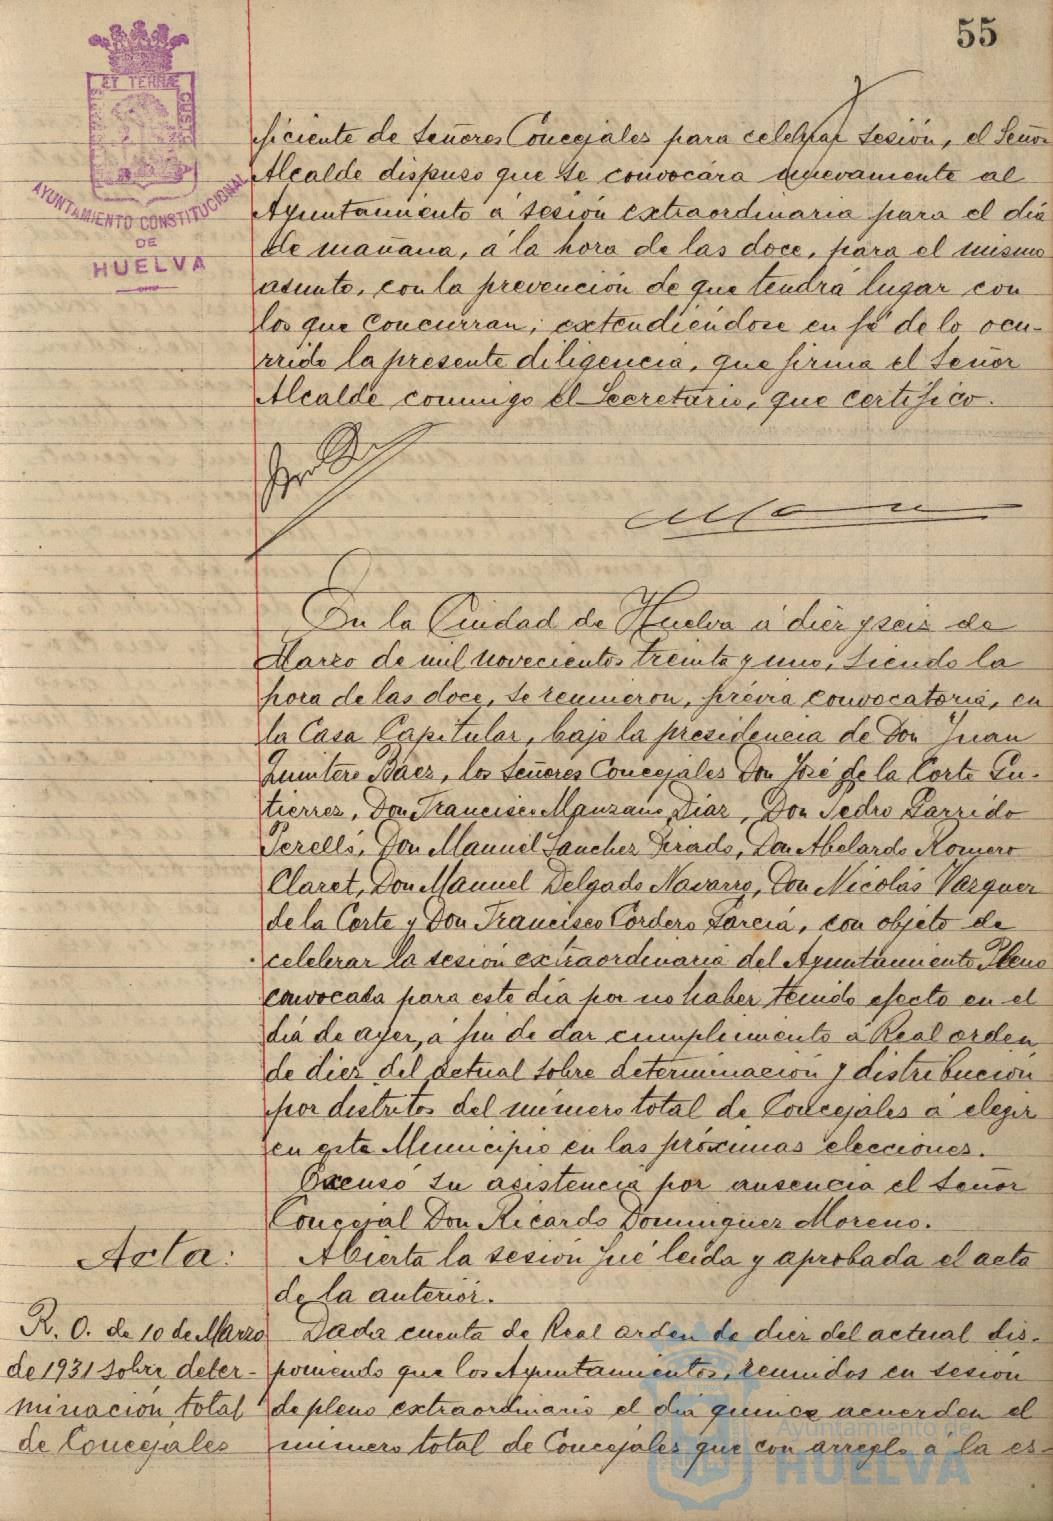 55
ET TERRÆ CUST
AYUNTAMIENTO CONSTITUCIONAL
DE
HUELVA
ficiente de Señores Concejales para celebrar sesión, el Señor
Alcalde dispuso que se convocára nuevamente al
Ayuntamiento á sesión extraordinaria para el día
de mañana, á la hora de las doce, para el mismo
asunto, con la prevención de que tendrá lugar con
los que concurran; extendiéndose en fé de lo ocu-
rrido la presente diligencia, que firma el Señor
Alcalde conmigo el Secretario, que certifico.
En la Ciudad de Huelva á diez y seis de
Marzo de mil novecientos treinta y uno, siendo la
hora de las doce, se reunieron, prévia convocatoria, en
la Casa Capitular, bajo la presidencia de Don Juan
Quintero Báez, los Señores Concejales Don José de la Corte Gu-
tierrez, Don Francisco Manzano Díaz, Don Pedro Garrido
Perelló, Don Manuel Sanchez Tirado, Don Abelardo Romero
Claret, Don Manuel Delgado Navarro, Don Nicolás Vázquez
de la Corte y Don Francisco Cordero García, con objeto de
celebrar la sesión extraordinaria del Ayuntamiento Pleno
convocada para este día por no haber tenido efecto en el
día de ayer, á fin de dar cumplimiento á Real orden
de diez del actual sobre determinación y distribución
por distritos del número total de Concejales á elegir
en este Municipio en las próximas elecciones.
Excusó su asistencia por ausencia el Señor
Concejal Don Ricardo Dominguez Moreno.
Acta: Abierta la sesión fué leída y aprobada el acta
de la anterior.
R. O. de 10 de Marzo
de 1931 sobre deter-
minación total
de Concejales
Dada cuenta de Real orden de diez del actual dis-
poniendo que los Ayuntamientos, reunidos en sesión
de pleno extraordinario el día quince acuerden el
número total de Concejales que con arreglo á la es-
Ayuntamiento de
HUELVA